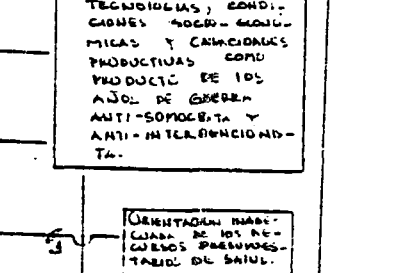 TECNOLOGIAS, CONDI-
CIONES SOCIO-ECONO-
MICAS Y CAPACIDADES
PRODUCTIVAS COMO
PRODUCTO DE LOS
AÑOS DE GUERRA
ANTI-SOMOCISTA Y
ANTI-INTERVENCIONIS-
TA.
ORIENTACION INADE-
CUADA DE LOS RE-
CURSOS PRESUPUES-
TARIOS DE SALUD.